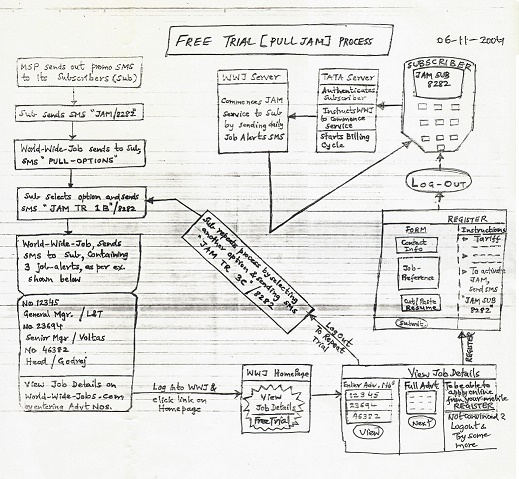 FREE TRIAL [PULL JAM] PROCESS
06-11-2009
MSP sends out promo SMS
to its Subscribers (Sub)
Sub sends SMS "JAM/8282"
World-Wide-Job sends to Sub,
SMS "PULL-OPTIONS"
Sub selects option and sends
SMS "JAM TR 1B"/8282
World-Wide-Job, sends
SMS to Sub, containing
3 job-alerts, as per ex.
shown below
No. 12345
General Mgr. / L&T
No 23694
Senior Mgr / Voltas
No 46382
Head / Godrej
View Job Details on
World-Wide-Jobs.Com
by entering Advt Nos.
Log into WWJ &
click link on
Homepage
WWJ HomePage
View
Job Details
Free Trial
Log Out
To Repeat
Trial
Sub repeats process by selecting
another option & sending SMS
"JAM TR 3C"/8282
View Job Details
Enter Adv. No
12345
23694
46382
View
Full Advt
Next
To be able to
apply online
from your mobile
REGISTER
Not convinced?
Logout &
Try some
more
REGISTER
REGISTER
FORM
Contact
Info
Job-
Preference
Cut/Paste
Resume
Submit
Instructions
Tariff
To activate
JAM,
send SMS
"JAM SUB
8282"
LOG-OUT
SUBSCRIBER
JAM SUB
8282
TATA Server
Authenticates
Subscriber
Instructs WWJ
to Commence
service
Starts Billing
Cycle
WWJ Server
Commences JAM
service to Sub
by sending daily
Job Alerts SMS